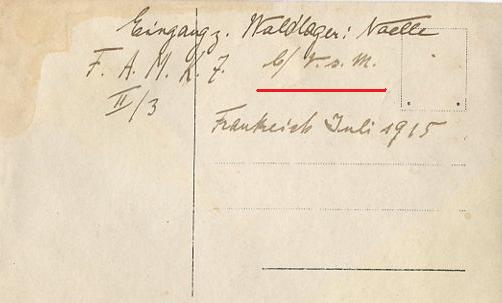 Eingang z. Waldlager: Naelle
F. A. M. K. 7. b/ V. s. M.
II/3
Frankreich Juli 1915